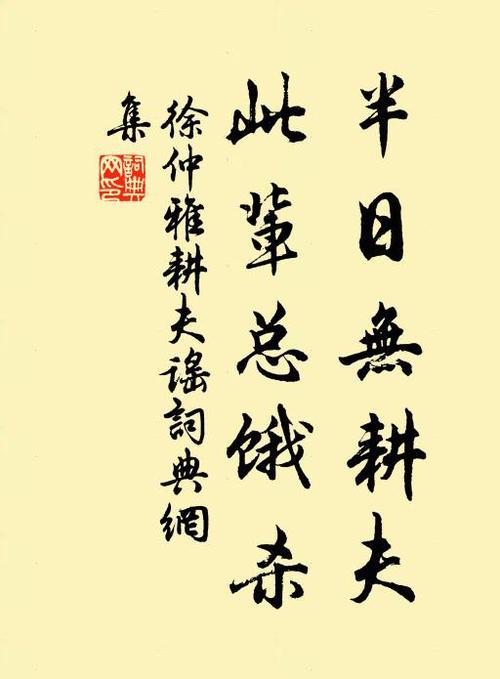 半日無耕夫
此輩总饿杀
徐仲雅耕夫谣詞典網
集
詞典
网印